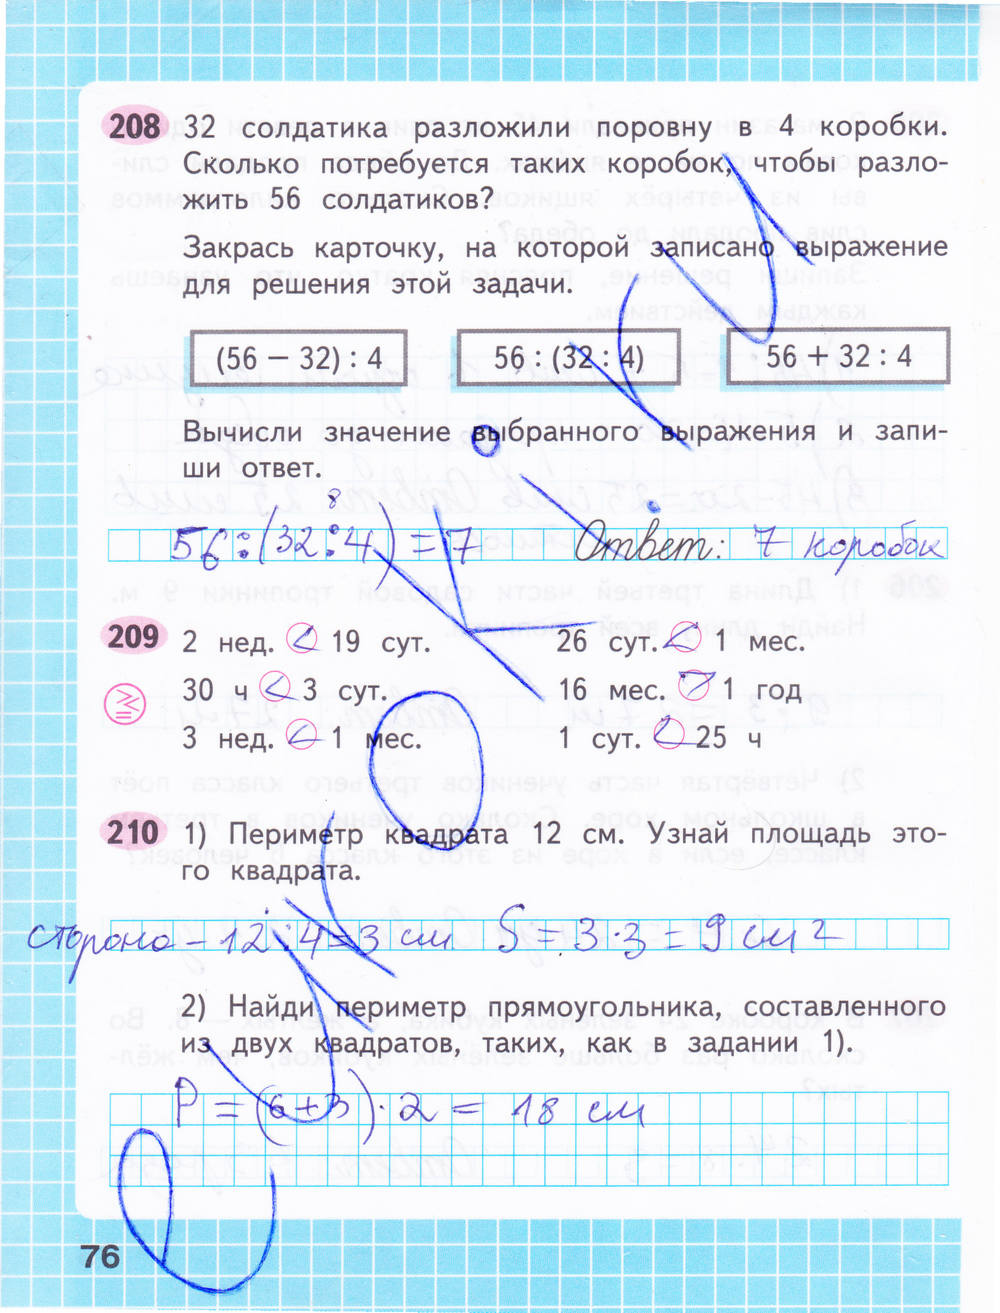 208 32 солдатика разложили поровну в 4 коробки.
Сколько потребуется таких коробок, чтобы разло-
жить 56 солдатиков?
Закрась карточку, на которой записано выражение
для решения этой задачи.
(56 − 32) : 4 56 : (32 : 4) 56 + 32 : 4
Вычисли значение выбранного выражения и запи-
ши ответ.
8
56 : (32 : 4) = 7 Ответ: 7 коробок
209 2 нед. < 19 сут. 26 сут. < 1 мес.
30 ч < 3 сут. 16 мес. > 1 год
3 нед. < 1 мес. 1 сут. < 25 ч
210 1) Периметр квадрата 12 см. Узнай площадь это-
го квадрата.
сторона – 12 : 4 = 3 см S = 3·3 = 9 см²
2) Найди периметр прямоугольника, составленного
из двух квадратов, таких, как в задании 1).
P = (6+3)·2 = 18 см
76